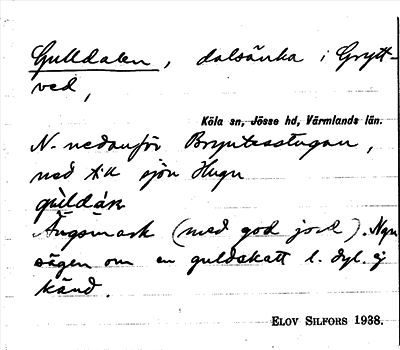 Gulldalen, dalsänka i Grytt-
ved,
Köla sn, Jösse hd, Värmlands län.
N. nedanför Bryntesstugan,
ned till sjön Hugn
gúldán
Ängsmark (med god jord). Ngn
sägen om en guldskatt l. dyl. ej
känd.
ELOV SILFORS 1938.